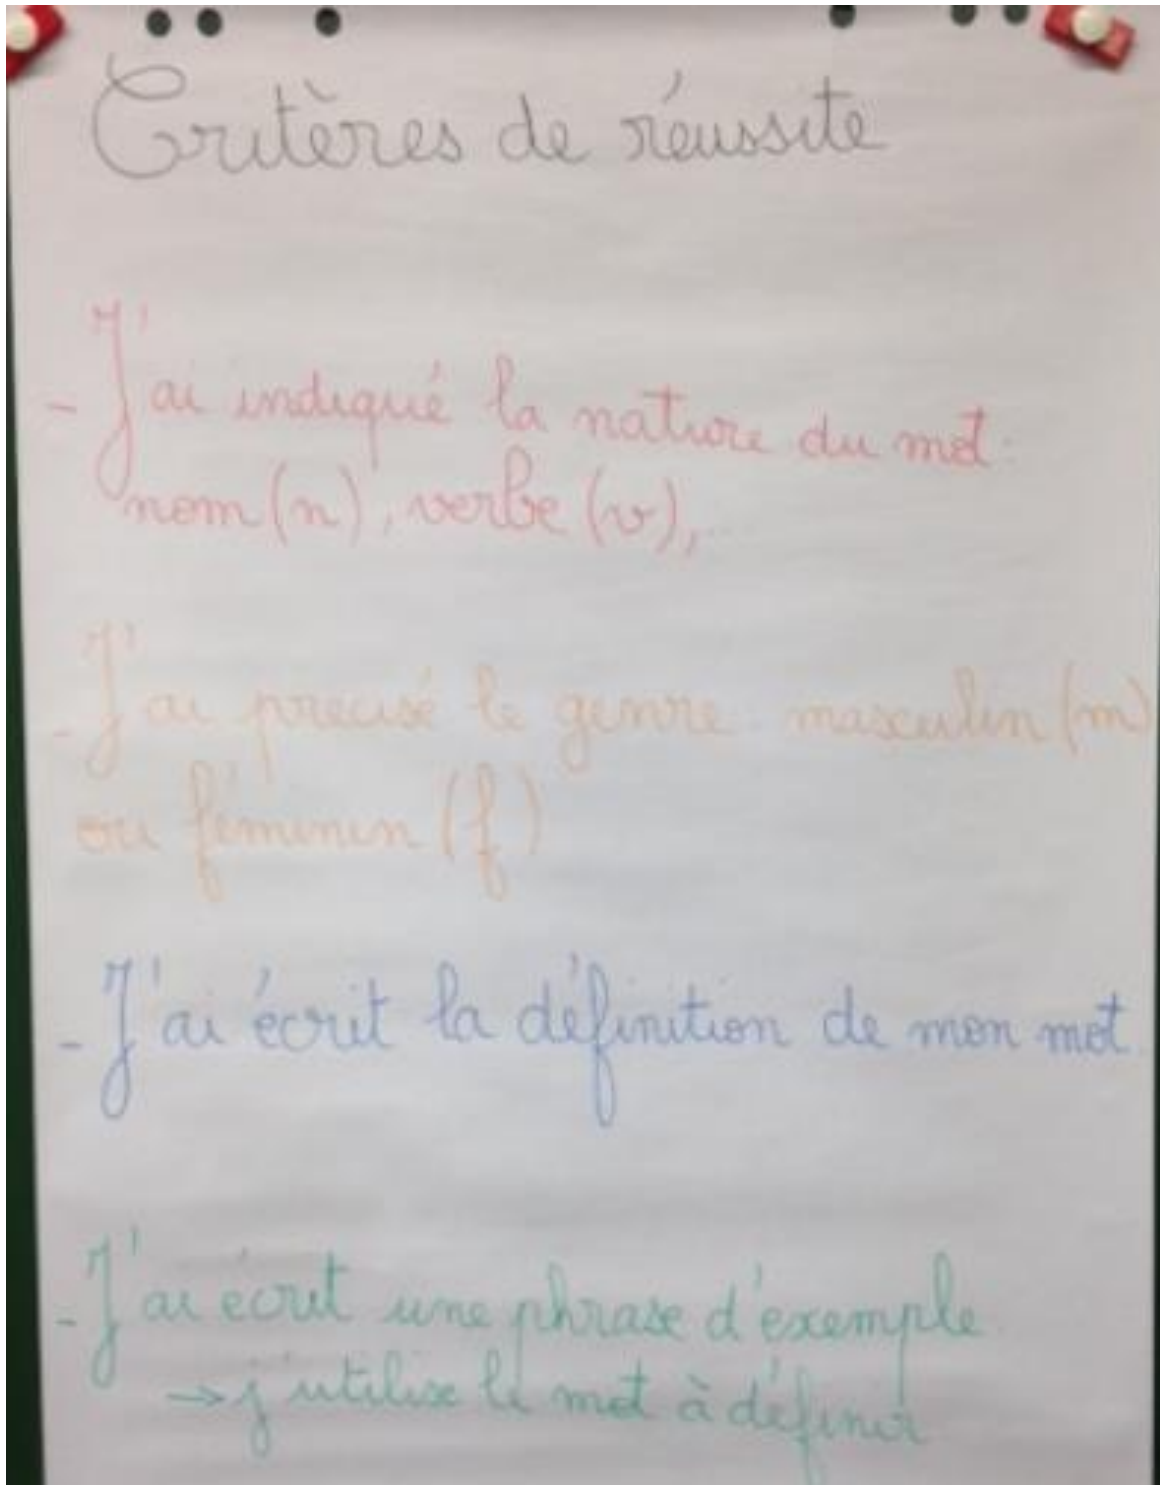 Critères de réussite
- J'ai indiqué la nature du mot :
nom (n), verbe (v), ...
- J'ai précisé le genre : masculin (m)
ou féminin (f)
- J'ai écrit la définition de mon mot.
- J'ai écrit une phrase d'exemple
→ j'utilise le mot à définir